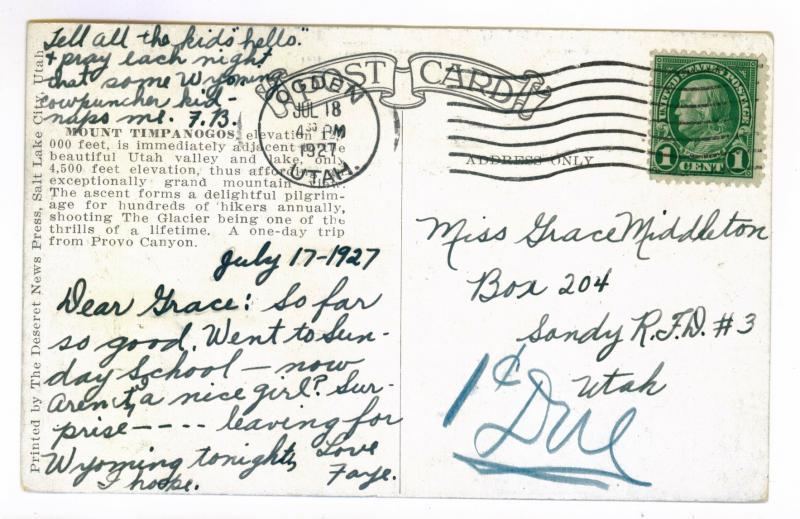 Tell all the kids "hello."
+ pray each night
that some Wyoming
cowpuncher kid-
naps me. F.B.
POST CARD
OGDEN
JUL 18
4 30 PM
1927
UTAH.
UNITED STATES POSTAGE
1 CENT 1
ADDRESS ONLY
MOUNT TIMPANOGOS, elevation 12,
000 feet, is immediately adjacent to the
beautiful Utah valley and lake, only
4,500 feet elevation, thus affording
exceptionally grand mountain
The ascent forms a delightful pilgrim-
age for hundreds of hikers annually,
shooting The Glacier being one of the
thrills of a lifetime. A one-day trip
from Provo Canyon.
Printed by The Deseret News Press, Salt Lake City, Utah
July 17-1927
Dear Grace: So far
so good. Went to Sun-
day School — now
Aren't a nice girl? Sur-
prise ---- leaving for
Wyoming tonight,
I hope.
Love
Faye.
Miss Grace Middleton
Box 204
Sandy R.F.D. #3
Utah
1¢
Due